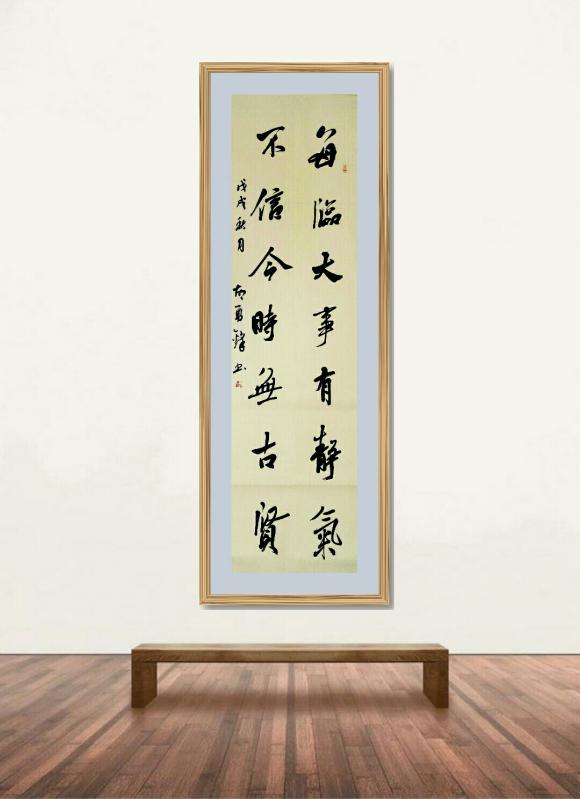 每臨大事有靜氣
不信今時無古贤
戊戌秋月 勇鋒书